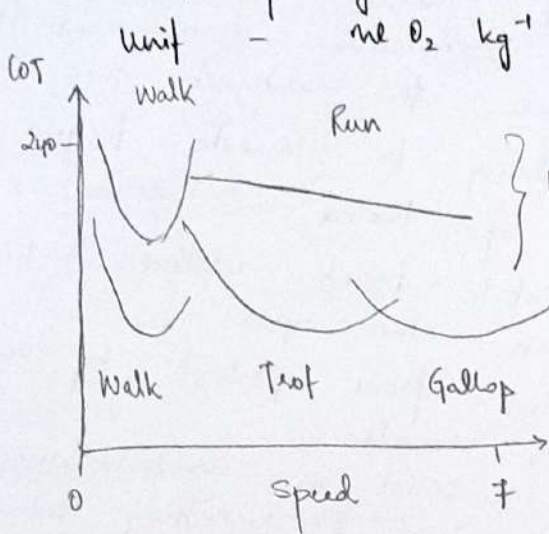 Unit - ml O₂ kg⁻¹
COT
Walk
Run
240
Walk Trot Gallop
0 Speed 7